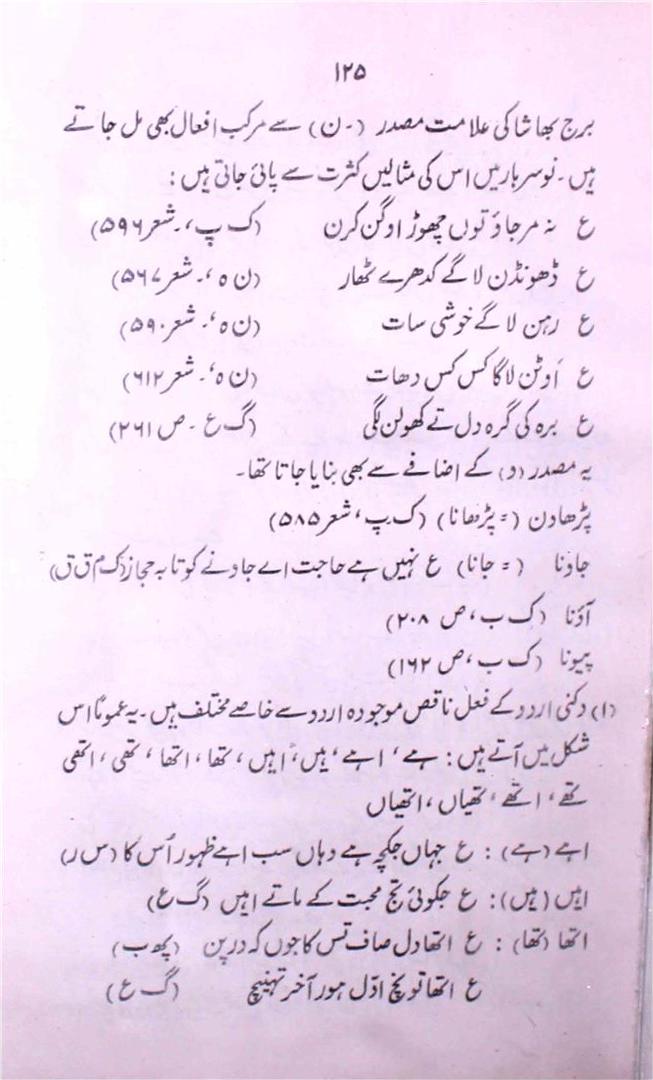 ۱۲۵
برج بھاشا کی علامت مصدر (۔ن) سے مرکب افعال بھی مل جاتے
ہیں۔ نوسرہار میں اس کی مثالیں کثرت سے پائی جاتی ہیں:
ع نہ مرجاؤ توں چھوڑ اوگن کرن (ک پ، ۔شعر ۵۹۶)
ع ڈھونڈن لاگے کدھرے ٹھار (ن ہ، ۔ شعر ۵۶۷)
ع رہن لاگے خوشی سات (ن ہ، ۔ شعر ۵۹۰)
ع اَوٹن لاگا کس کس دھات (ن ہ، ۔ شعر ۶۱۲)
ع برہ کی گرہ دل تے کھولن لگی (گ ع ۔ ص ۲۶۱)
یہ مصدر (و) کے اضافے سے بھی بنایا جاتا تھا۔
پڑھاون (= پڑھانا) (ک پ، شعر ۵۸۵)
جاونا (= جانا) ع نہیں ہے حاجت اے جاونے کو تا بہ حجاز (ک م ق ق)
آؤنا (ک ب، ص ۲۰۸)
پیونا (ک ب، ص ۱۶۲)
(۱) دکنی اردو کے فعل ناقص موجودہ اردو سے خاصے مختلف ہیں۔ یہ عموماً اس
شکل میں آتے ہیں: ہے، اہے، ہیں، اہیں، تھا، اتھا، تھی، اتھی
تھے، اتھے، تھیاں، اتھیاں
اہے (ہے): ع جہاں جکچہ ہے وہاں سب اہے ظہور اُس کا (س ر)
اہیں (ہیں): ع جکوئی تج محبت کے ماتے اہیں (گ ع)
اتھا (تھا): ع اتھا دل صاف تس کا جوں کہ درپن (پھ ب)
ع اتھا تونچ اوّل ہور آخر تہنیچ (گ ع)